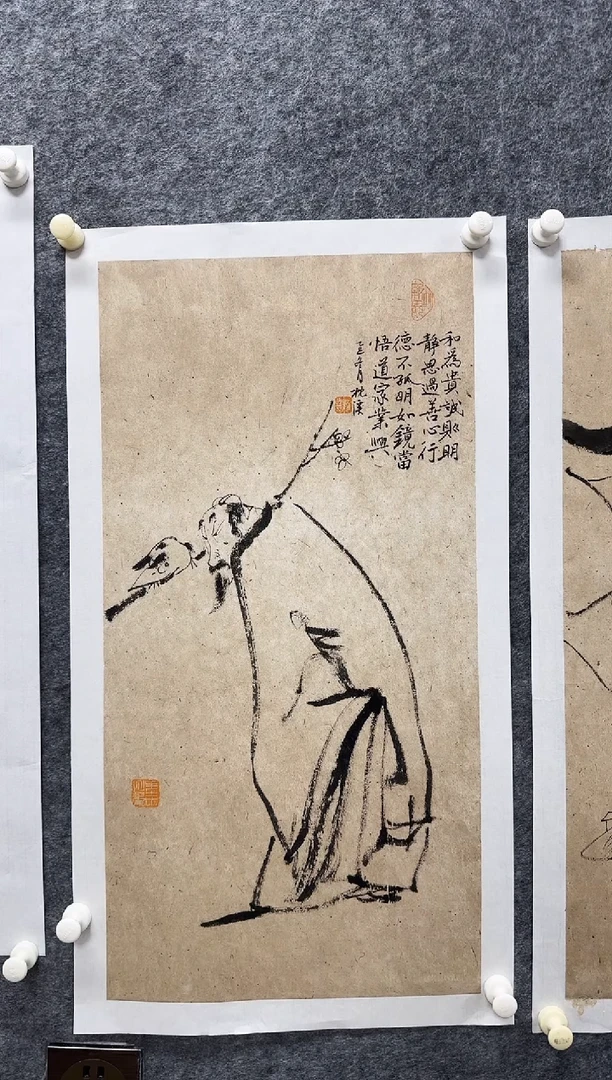 和為貴誠則明
靜思過善心行
德不孤明如鏡當
悟道家業興
乙巳